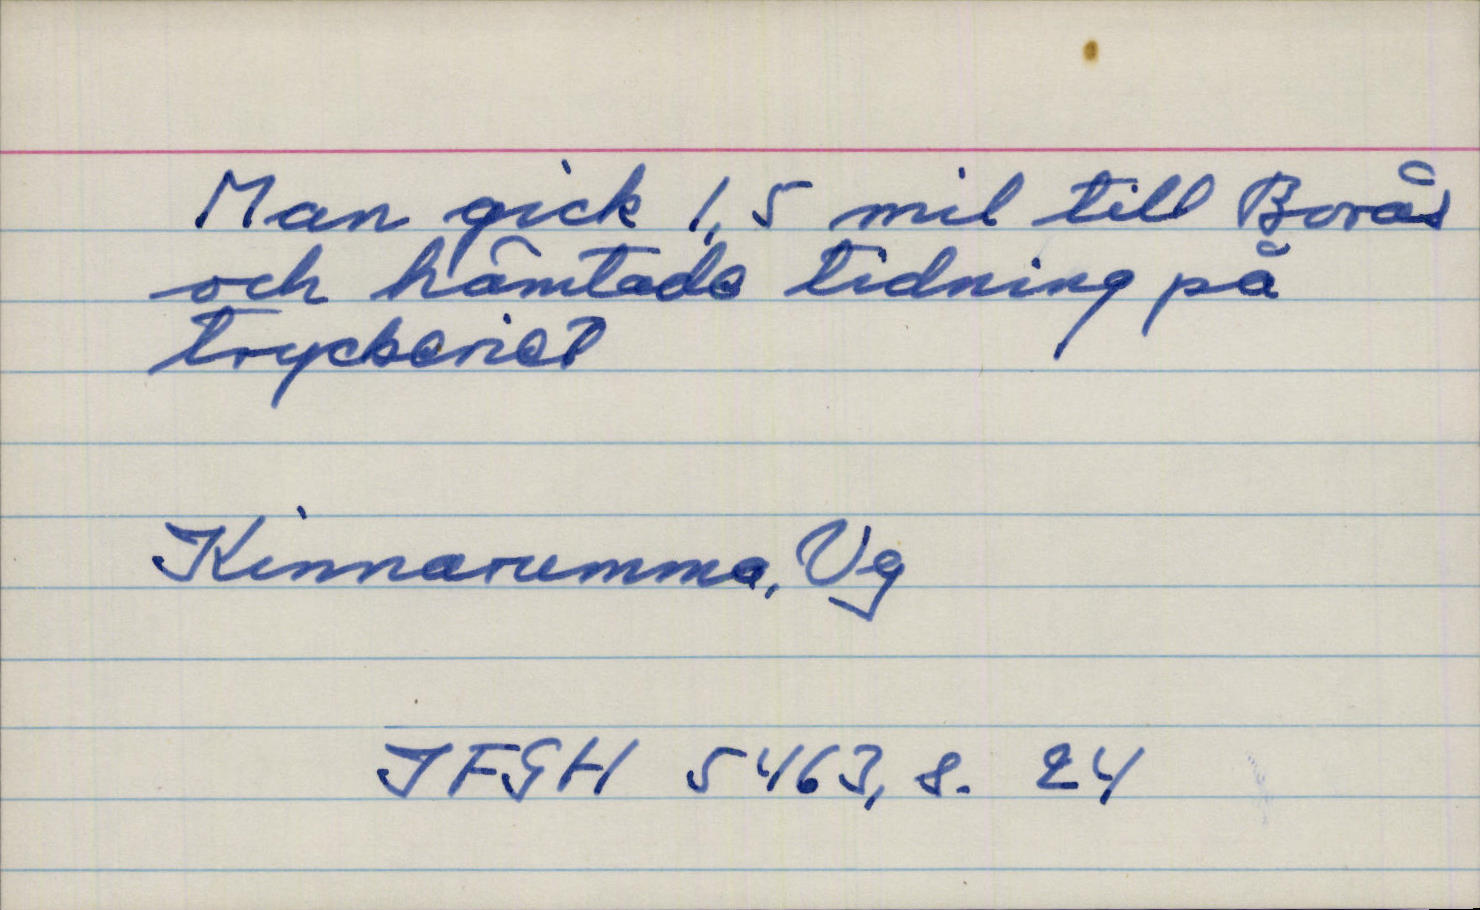 Man gick 1,5 mil till Borås
och hämtade tidning på
tryckeriet
Kinnarumma, Vg
IFGH 5463, s. 24